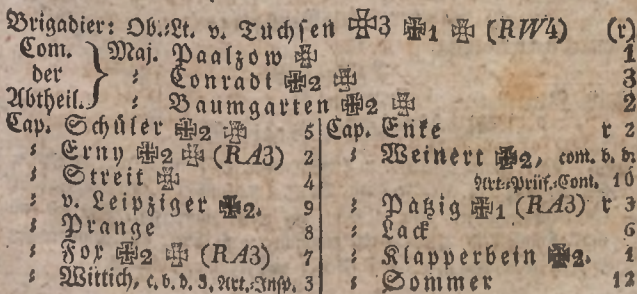 Brigadier: Ob.-Lt. v. Tuchsen ✠3 ✠1 ✠ (RW4) (r)
Com. der Abtheil. Maj. Paalzow ✠ 1
: Conradt ✠2 ✠ 3
: Baumgarten ✠2 ✠ 2
Cap. Schüler ✠2 ✠ 5
: Erny ✠2 ✠ (RA3) 2
: Streit ✠ 4
: v. Leipziger ✠2. 9
: Prange 8
: Fox ✠2 ✠ (RA3) 7
: Wittich, c. b. d. 3. Art.-Insp. 3
Cap. Enke r 2
: Weinert ✠2, com. b. d.
Art.-Prüf.-Com. 10
: Patzig ✠1 (RA3) r 3
: Lack 6
: Klapperbein ✠2. 1
: Sommer 12